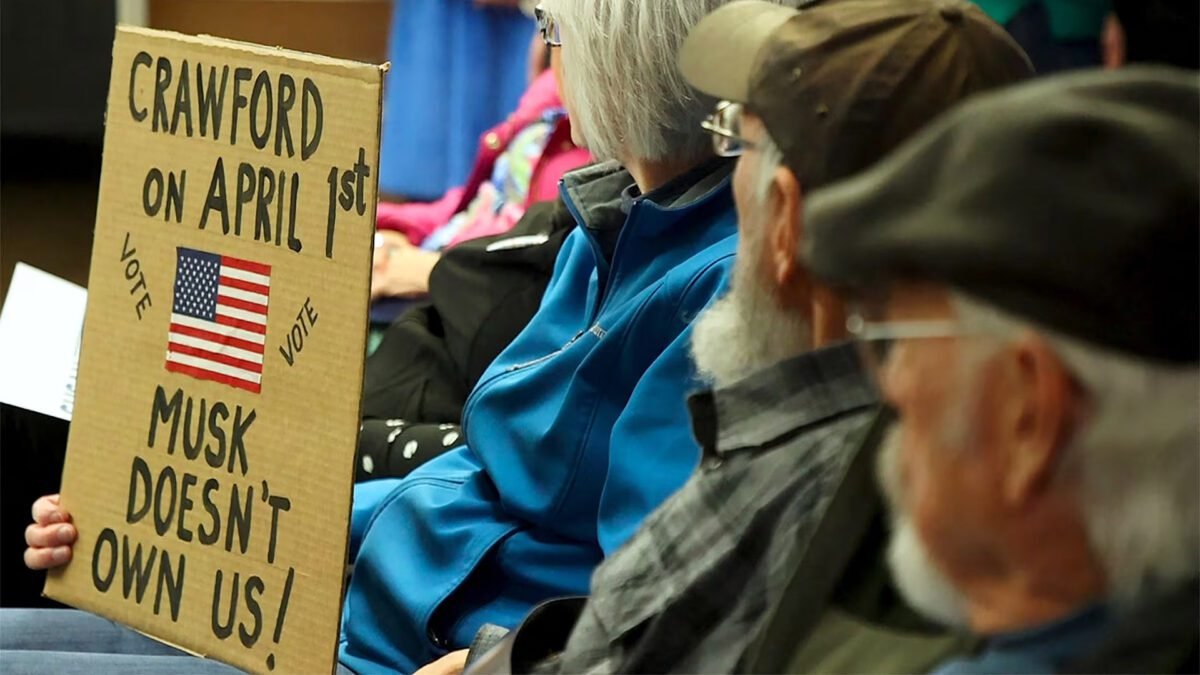 CRAWFORD
ON APRIL 1st
VOTE
VOTE
MUSK
DOESN'T
OWN US!